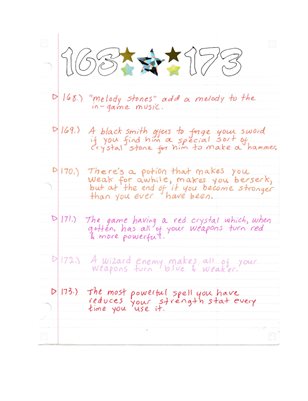 168 173
168.) "melody stones" add a melody to the
in-game music.
169.) A black smith offers to forge your sword
if you find him a special sort of
crystal stone for him to make a hammer.
170.) There's a potion that makes you
weak for awhile, makes you berserk,
but at the end of it you become stronger
than you ever have been.
171.) The game having a red crystal which, when
gotten, has all of your weapons turn red
& more powerful.
172.) A wizard enemy makes all of your
weapons turn blue & weaker.
173.) The most powerful spell you have
reduces your strength stat every
time you use it.